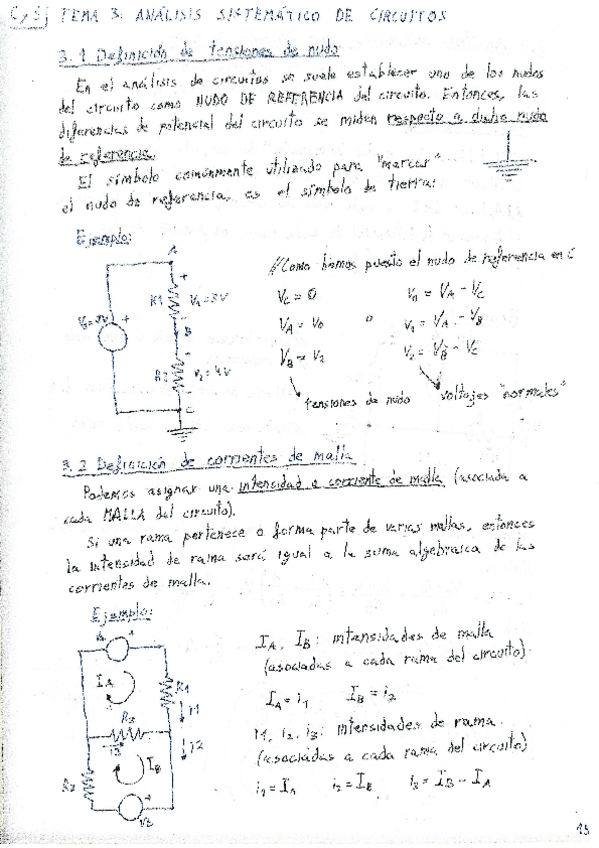 TEMA 3: ANÁLISIS SISTEMÁTICO DE CIRCUITOS
3.1 Definición de tensiones de nudo
En el análisis de circuitos se suele establecer uno de los nudos
del circuito como NUDO DE REFERENCIA del circuito. Entonces, las
diferencias de potencial del circuito se miden respecto a dicho nudo
de referencia.
El símbolo comúnmente utilizado para "marcar"
el nudo de referencia, es el símbolo de tierra:
Ejemplo:
A
//Como hemos puesto el nudo de referencia en C
R1 V₁=3V
B
R2 V₂=4V
C
V_C = 0
V_A = V_0
V_B = V_2
tensiones de nudo
V_0 = V_A - V_C
V_1 = V_A - V_B
V_2 = V_B - V_C
voltajes "normales"
3.2 Definición de corrientes de malla
Podemos asignar una intensidad o corriente de malla (asociada a
cada MALLA del circuito).
Si una rama pertenece o forma parte de varias mallas, entonces
la intensidad de rama será igual a la suma algebraica de las
corrientes de malla.
Ejemplo:
I_A
R1
i1
R3
i3
i2
I_B
R2
V3
I_A, I_B: intensidades de malla
(asociadas a cada rama del circuito)
I_A = i_1 I_B = i_2
i1, i2, i3: intensidades de rama
(asociadas a cada rama del circuito)
i_1 = I_A i_2 = I_B i_3 = I_B - I_A